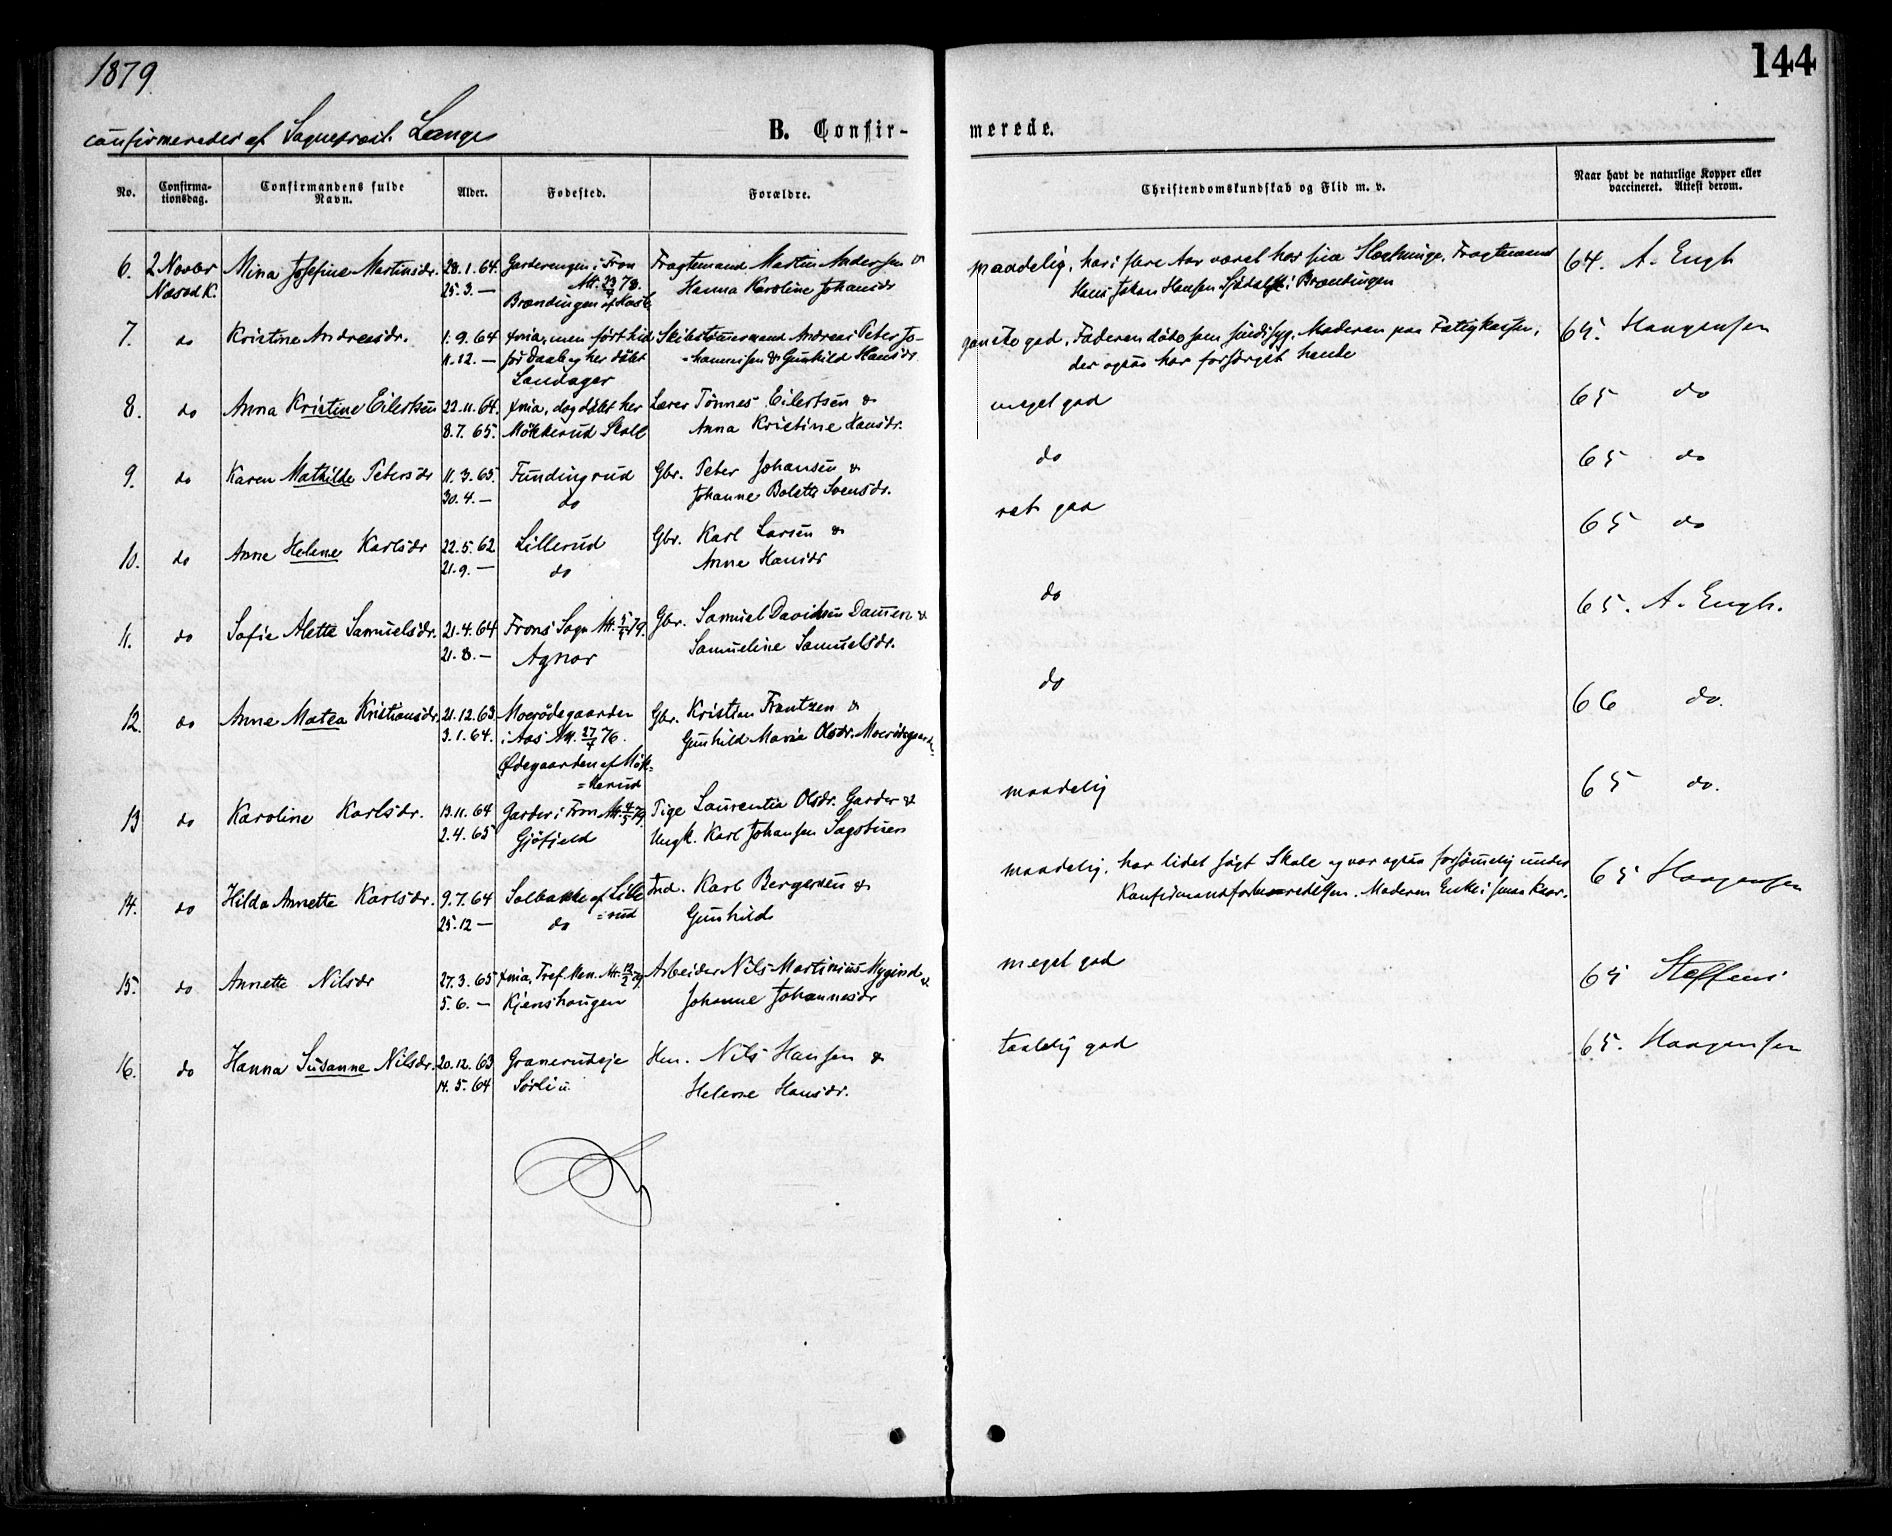 1879.
144
confirmeredes af Sognepræst. Lange
B. Confir-
merede.
No.
Confirma-
tionsdag.
Confirmandens fulde
Navn.
Alder.
Fødested.
Forældre.
Christendomskundskab og Flid m. v.
Naar havt de naturlige Kopper eller
vaccineret. Attest derom.
6. 2 Novbr Mina Josefine Martinsdr. 28.1.64. Garderengen i Fron Fragtemand Martin Andersen & maadelig, har i flere Aar været hos sin Fragtemand 64. A. Engh
Nesod K. 25.3. — Att. 23/9 78. Hanna Karoline Johansdr Hans Jakan Hansen i Brændingen
Brændingen af
7. do Kristine Andreasdr. 1.9.64 Xnia, men født hid Skibstømmermand Andreas Peter Jo- ganske god, Faderen døde som sindssyg, Moderen paa Fatigkassen, 65. Haagensen
11.12. — før Daab og her døbt =hannisen & Gunhild Hansdr. der ogsaa har forsørget hende
Landager
8. do Anna Kristine Eilertsen 22.11.64. Xnia, dog døbt her Lærer Tønnes Eilertsen & meget god 65 do
8.7.65. Mökkerud Skole Anna Kristine Hansdr.
9. do Karen Mathilde Petersdr 11.3.65. Fundingrud Gbr. Peter Johansen & do 65 do
30.4. — do Johanne Bolette Svensdr.
10. do Anne Helene Karlsdr 22.5.62 Lillerud Gbr. Karl Larsen & ret god 65 do
21.9. — do Anne Hansdr
11. do Sofie Alette Samuelsdr. 21.4.64 Frons Sogn Att. 5/4 79. Gbr. Samuel Davidsen & do 65. A. Engh.
21.8. — Agnor Samueline Samuelsdr.
12. do Anne Matea Kristiansdr. 21.12.63. Moerödegaarden Gbr. Kristian Frantzen & do 66 do.
3.1.64. i Aas Att. 27/4 76. Gunhild Marie Olsdr. Moerödegaarde.
Ødegaarden af Mök-
=kerud
13 do Karoline Karlsdr. 13.11.64 Garder i Fron Att. 4/5 79. Pige Laurentia Olsdr. Garder & maadelig 65 do.
2.4.65 Gjöfjeld Ungk. Karl Johansen Sagstuen
14. do Hilda Annette Karlsdr. 9.7.64 Solbakke af Lille Ind. Karl Bergersen & maadelig, har lidet søgt Skole og var ogsaa forsømmelig under 65 Haagensen
25.12 — do =rud Gunhild Konfirmandforberedelsen. Moderen Enke i smaa Kaar.
15. do Annette Nilsdr 27.3.65 Xnia, Tref. Men. Att. 12/2 79. Arbeider Nils Martinius Mygind & meget god 65 Steffens
5.6. — Kjenshaugen Johanne Johannesdr
16. do Hanna Susanne Nilsdr. 20.12.63 Granerudeje Hm. Nils Hansen & taalelig god 65. Haagensen
14.5.64 Sørli u. Helene Hansdr.